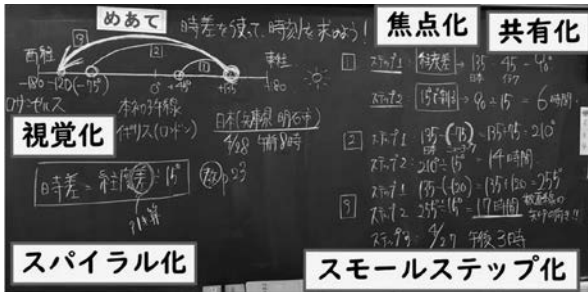 めあて
時差を使って、時刻を求めよう!
焦点化
共有化
西経
東経
-180 -120 (-75°) 0° +45° +135 +180
ロサンゼルス
本初子午線
イギリス(ロンドン)
日本(兵庫県 明石市)
4/28 午前8時
視覚化
時差=経度差÷15°
P.23
ひき算
スパイラル化
1 ステップ1: 経度差 → 135 - 45 = 90°
日本
ステップ2: 15°で割る → 90 ÷ 15 = 6時間
2 ステップ1 135-(-75)=135+75=210°
日本
ステップ2: 210°÷15°=14時間
3 ステップ1 135-(-120)=135+120=255°
ステップ2 255÷15°=17時間
ステップ3: 4/27 午後3時
スモールステップ化